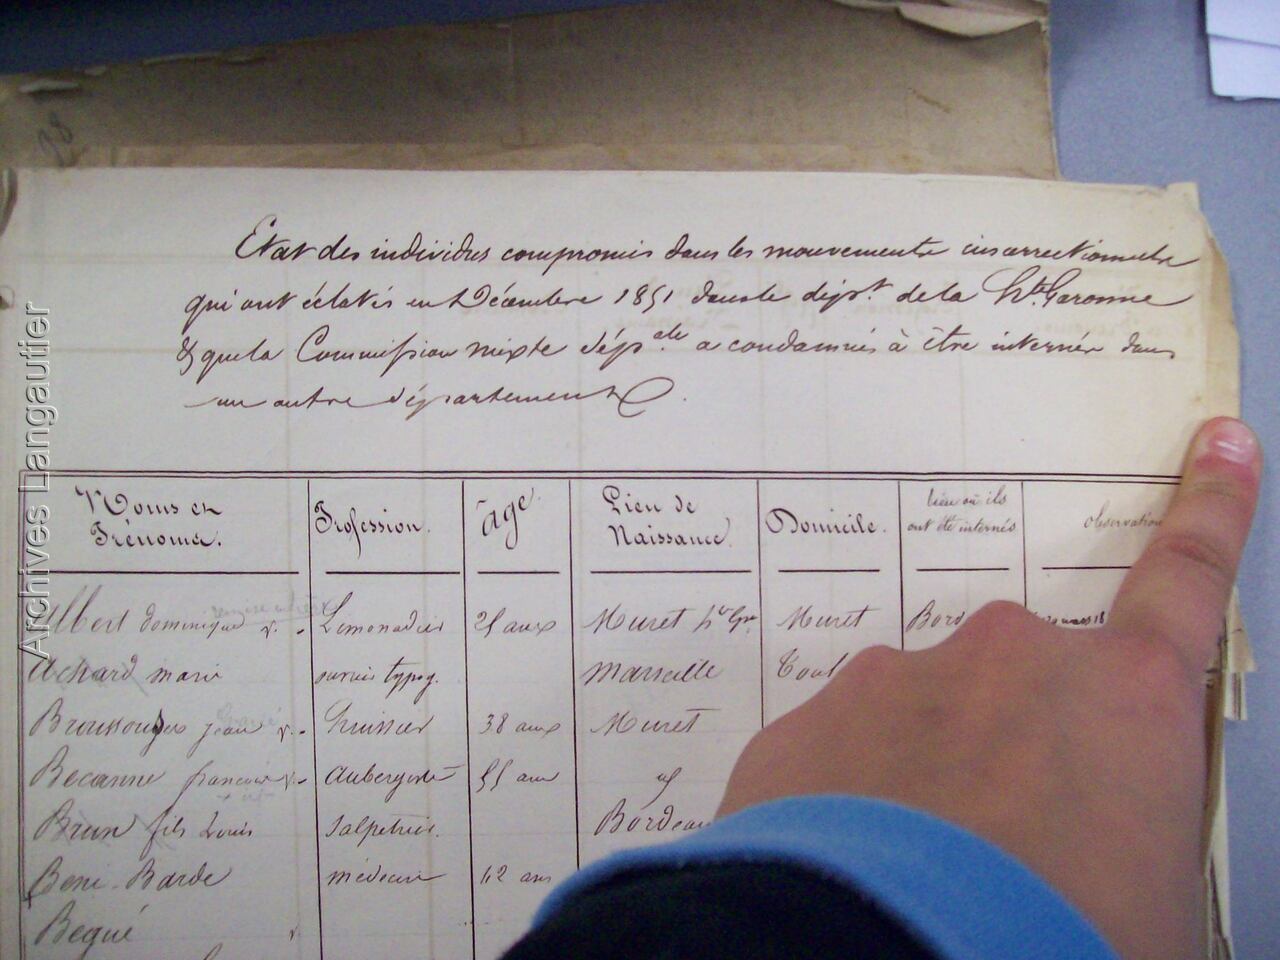 Etat des individus compromis dans les mouvements insurrectionnels
qui ont éclatés en Xbre Décembre 1851 dans le dépt. de la Hte. Garonne
& que la Commission mixte dépale a condamnés à être internés dans
un autre département.
Noms et Prénoms.
Profession.
âge.
Lieu de Naissance.
Domicile.
lieu où ils ont été internés
observation
Albert dominique Limonadier ans Muret Hte Gne Muret Bord
Achard marie ouvrier typog. Marseille Toul
jean huissier 38 ans Muret
Becanne françois Aubergiste ans id
Brun fils Louis Salpetrier. Bordeau
Beni-Barde médecin 42 ans
Begué
98
Archives Langautier